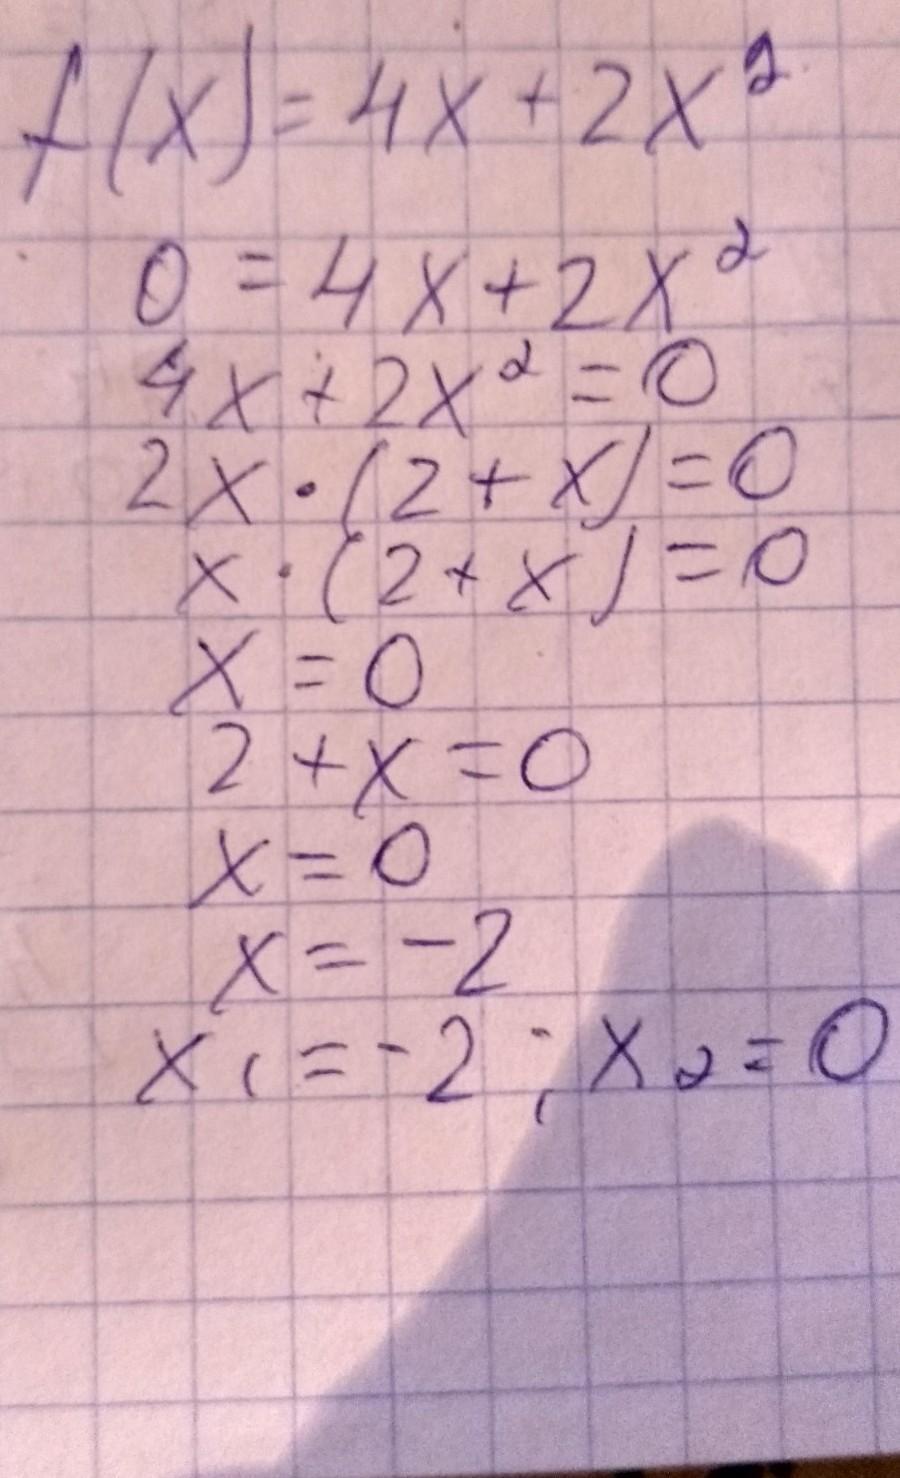 f(x) = 4x + 2x²
0 = 4x + 2x²
4x + 2x² = 0
2x · (2 + x) = 0
x · (2 + x) = 0
x = 0
2 + x = 0
x = 0
x = -2
x₁ = -2 ; x₂ = 0